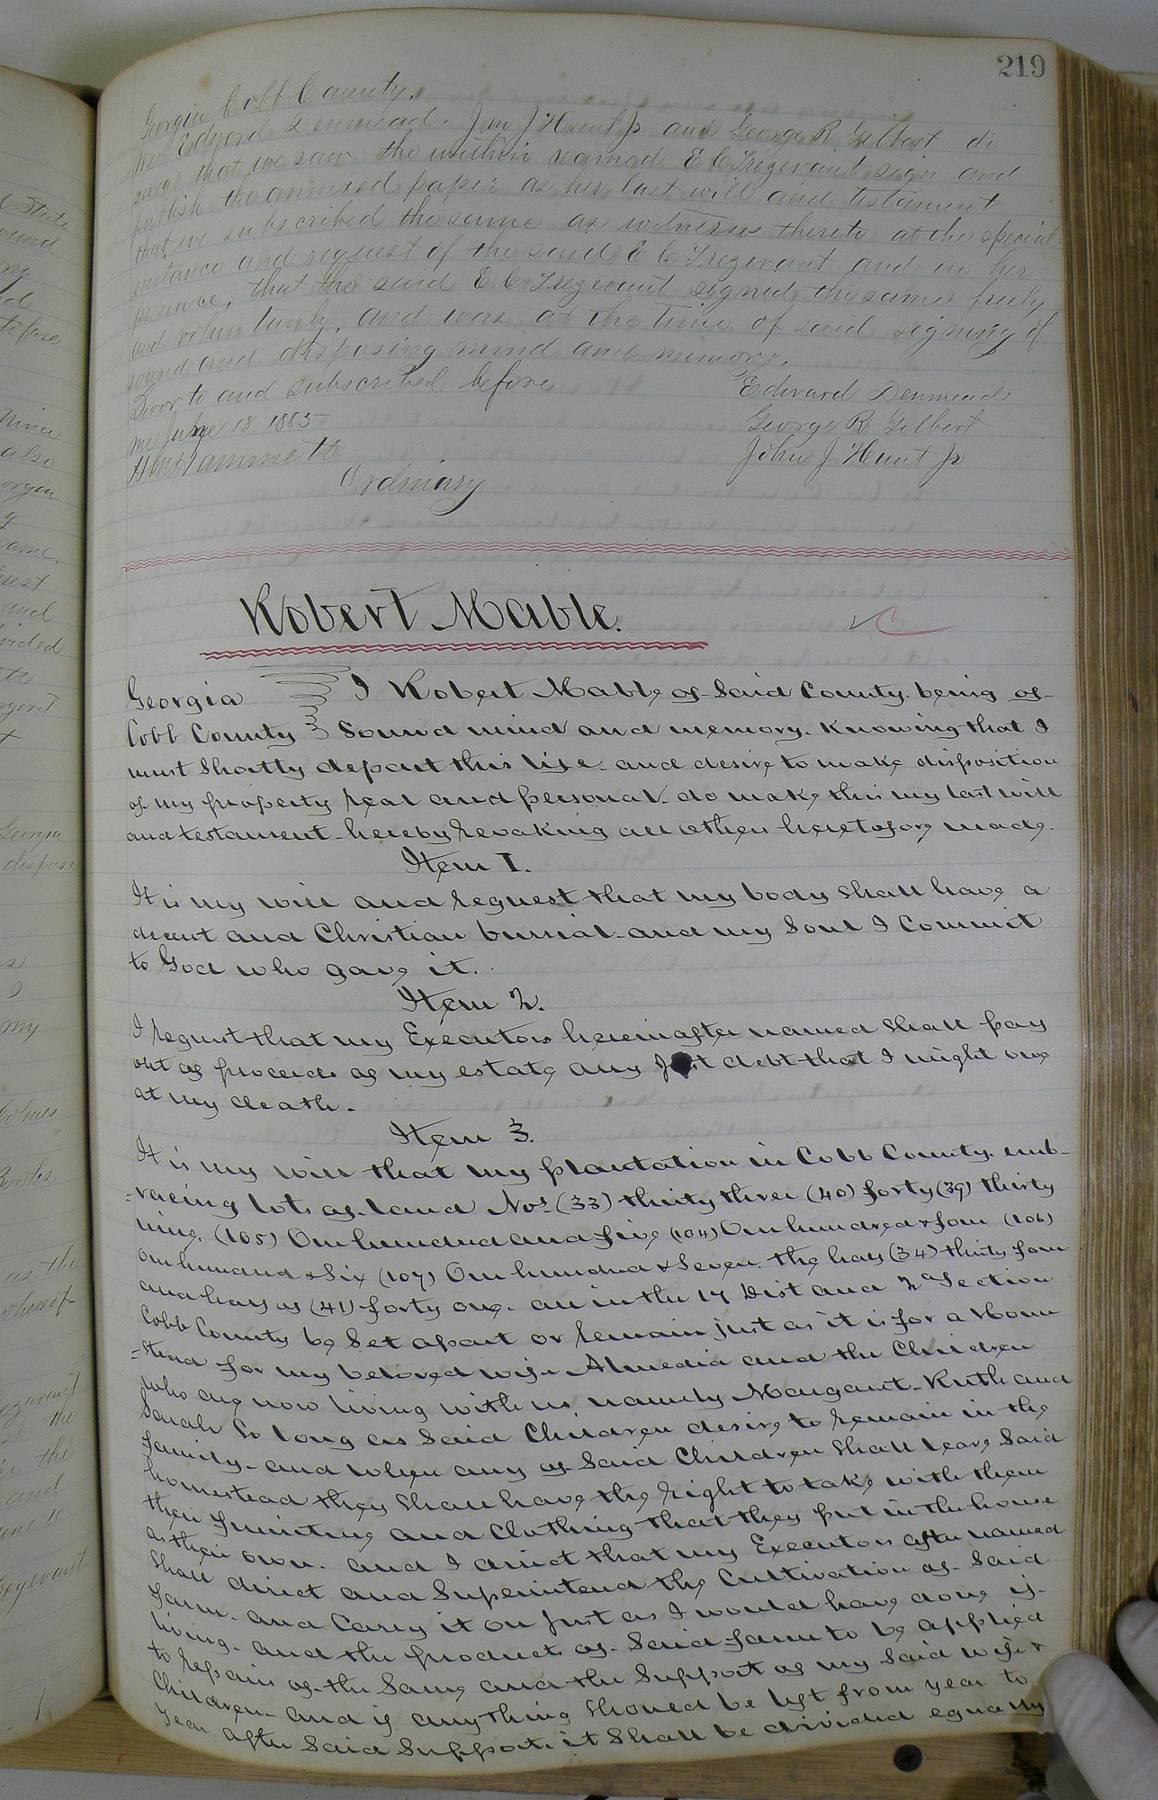 219
Georgia Cobb County.
We Edward Denmead, Jno J Hunt Jr and George R Gilbert do
swear that we saw the within named E C Trezevant sign and
publish the annexed paper as her last will and testament
that we subscribed the same as witnesses thereto at the special
instance and request of the said E C Trezevant and in her
presence, that the said E C Trezevant signed the same freely
and voluntarily, and was at the time of said signing of
sound and disposing mind and memory.
Sworn to and subscribed before
me June 18 1885
Hammett
Ordinary
Edward Denmead
George R Gilbert
John J Hunt Jr
Robert Mable.
Georgia } I Robert Mable of Said County being of
Cobb County } Sound mind and memory. Knowing that I
must Shortly depart this life and desire to make disposition
of my property real and personal do make this my last will
and testament hereby revoking all others heretofore made.
Item 1.
It is my will and request that my body shall have a
decent and Christian burial and my Soul I Commit
to God who gave it.
Item 2.
I request that my Executors hereinafter named shall pay
out of proceeds of my estate any Just debt that I might owe
at my death.
Item 3.
It is my will that my plantation in Cobb County. emb-
=racing lots of land Nos. (33) thirty three (40) forty (39) thirty
nine. (105) One hundred and five (104) One hundred & four (106)
One hundred & Six (107) One hundred & Seven. the half (34) thirty four
and half of (41) forty one. all in the 17 Dist and 2nd Section
Cobb County be Set apart or remain just as it is for a Home
=stead for my beloved wife Almedia and the Children
who are now living with us namely Margaret. Ruth and
Sarah So long as Said Children desire to remain in the
family. and when any of Said Children Shall leave Said
homestead they Shall have the right to take with them
their furniture and Clothing that they put in the house
as their own. and I direct that my Executors after named
Shall direct and Superintend the Cultivation of Said
farm. and Carry it on Just as I would have done if
living. and the product of Said farm to be applied
to repairs of the Same and the Support of my Said wife &
Children. and if anything Should be left from year to
year after Said Support. it Shall be divided equally